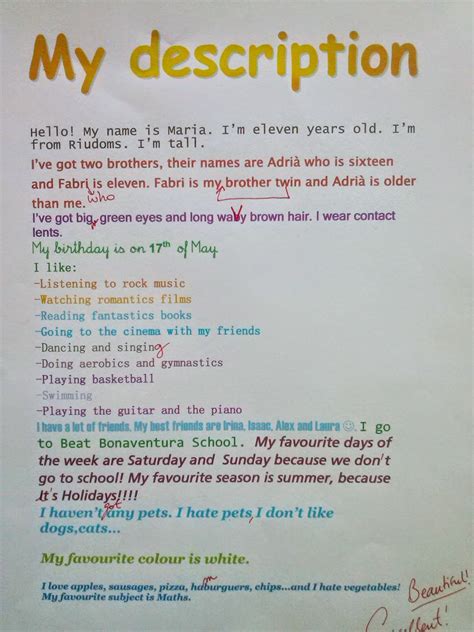 My description
Hello! My name is Maria. I'm eleven years old. I'm
from Riudoms. I'm tall.
I've got two brothers, their names are Adrià who is sixteen
and Fabri is eleven. Fabri is my brother twin and Adrià is older
who
than me.
I've got big, green eyes and long wavy brown hair. I wear contact
lents.
My birthday is on 17th of May
I like:
-Listening to rock music
-Watching romantics films
-Reading fantastics books
-Going to the cinema with my friends
-Dancing and singing
-Doing aerobics and gymnastics
-Playing basketball
-Swimming
-Playing the guitar and the piano
I have a lot of friends. My best friends are Irina, Isaac, Alex and Laura ☺. I go
to Beat Bonaventura School. My favourite days of
the week are Saturday and Sunday because we don't
go to school! My favourite season is summer, because
It's Holidays!!!!
got
I haven't any pets. I hate pets, I don't like
dogs,cats...
My favourite colour is white.
m
I love apples, sausages, pizza, haburguers, chips...and I hate vegetables!
My favourite subject is Maths.
Beautiful!
Excellent!